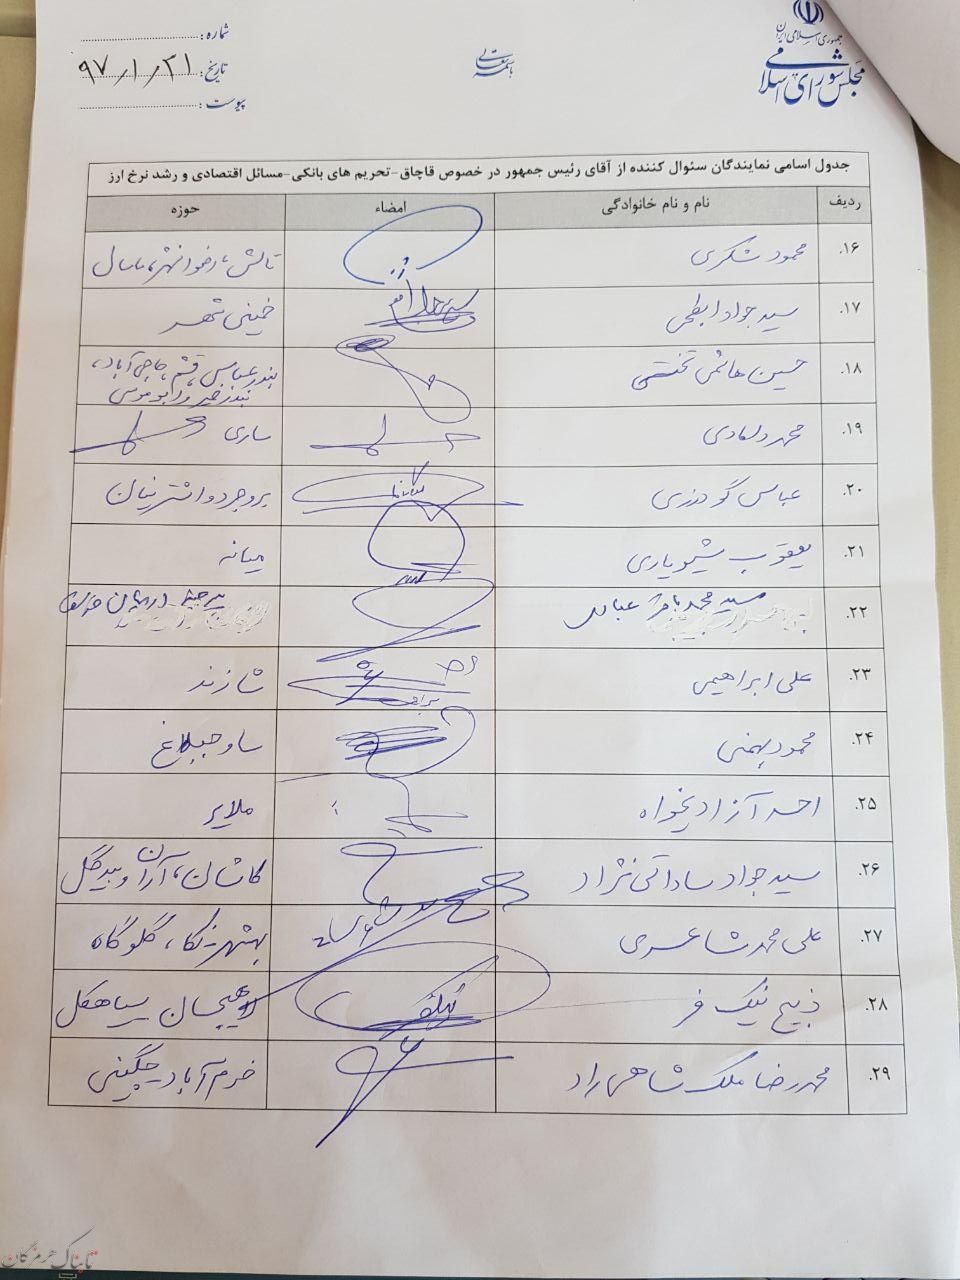 جمهوری اسلامی ایران
مجلس شورای اسلامی
باسمه تعالی
شماره:
تاریخ: ۹۷/۱/۲۱
پیوست:
جدول اسامی نمایندگان سئوال کننده از آقای رئیس جمهور در خصوص قاچاق-تحریم های بانکی-مسائل اقتصادی و رشد نرخ ارز
ردیف نام و نام خانوادگی امضاء حوزه
۱۶. محمود شکری تالش، رضوانشهر، ماسال
۱۷. سید جواد ابطحی خمینی شهر
۱۸. حسین هاشمی تختی بندرعباس، قشم، حاجی آباد،
ابوموسی
۱۹. محمد دامادی ساری
۲۰. عباس گودرزی بروجرد و اشترینان
۲۱. یعقوب شیویاری میانه
۲۲. سید محمد باقر عبادی بیرجند درمیان خوسف
۲۳. علی ابراهیمی شازند
۲۴. محمود بهمنی ساوجبلاغ
۲۵. احد آزادیخواه ملایر
۲۶. سید جواد ساداتی نژاد کاشان، آران و بیدگل
۲۷. علی محمد شاعری بهشهر، نکا، گلوگاه
۲۸. ذبیح نیک فر لاهیجان سیاهکل
۲۹. محمدرضا ملک شاهی راد خرم آباد چگینی
تابناک هرمزگان